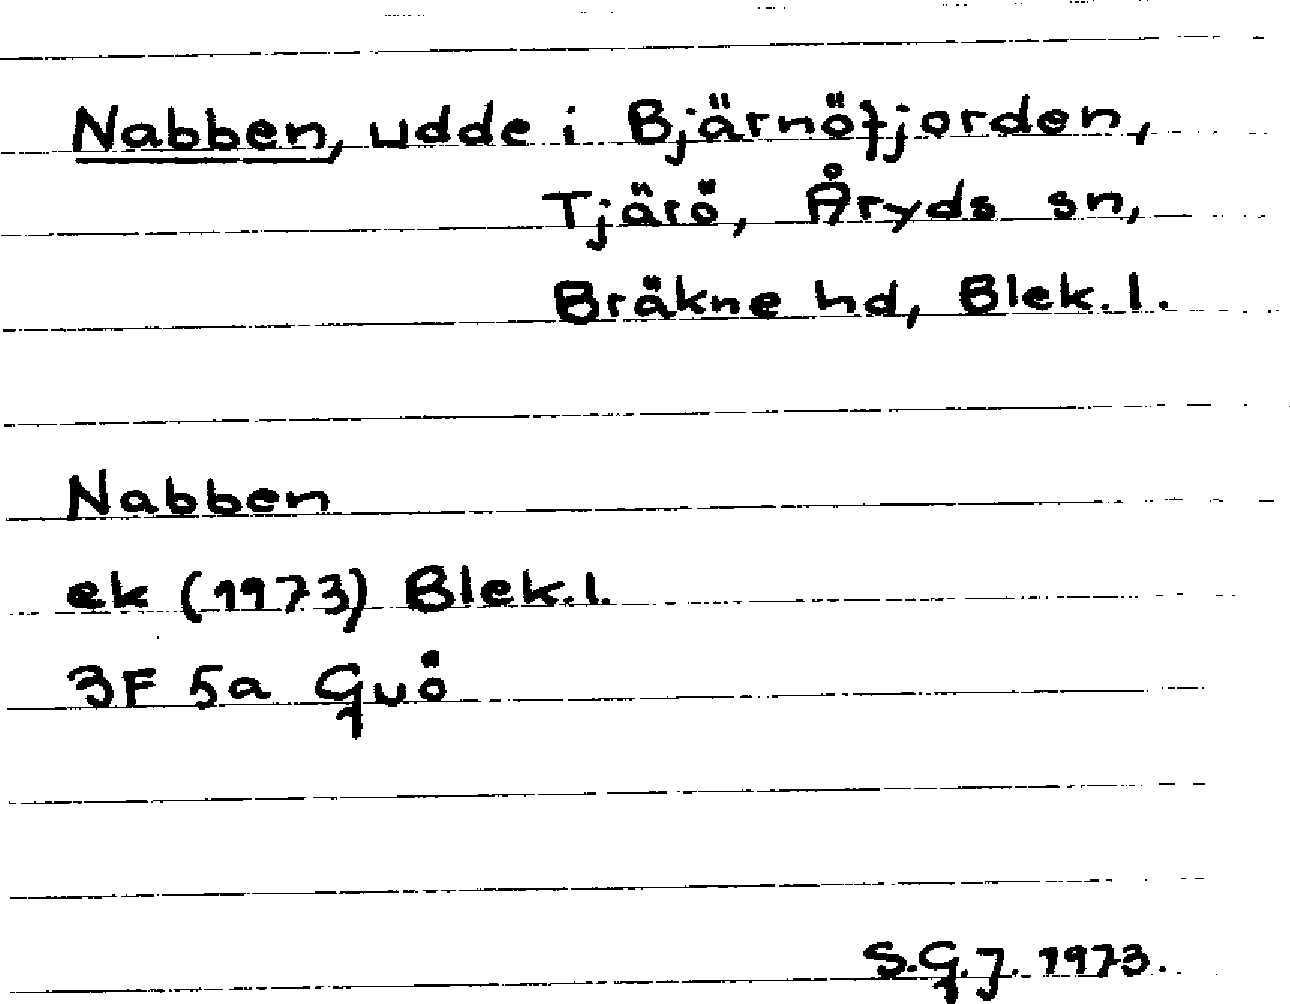 Nabben, udde i Bjärnöfjorden,
Tjärö, Åryds sn,
Bräkne hd, Blek.l.
Nabben
ek (1973) Blek.l.
3F 5a Guö
S.G.J. 1973.